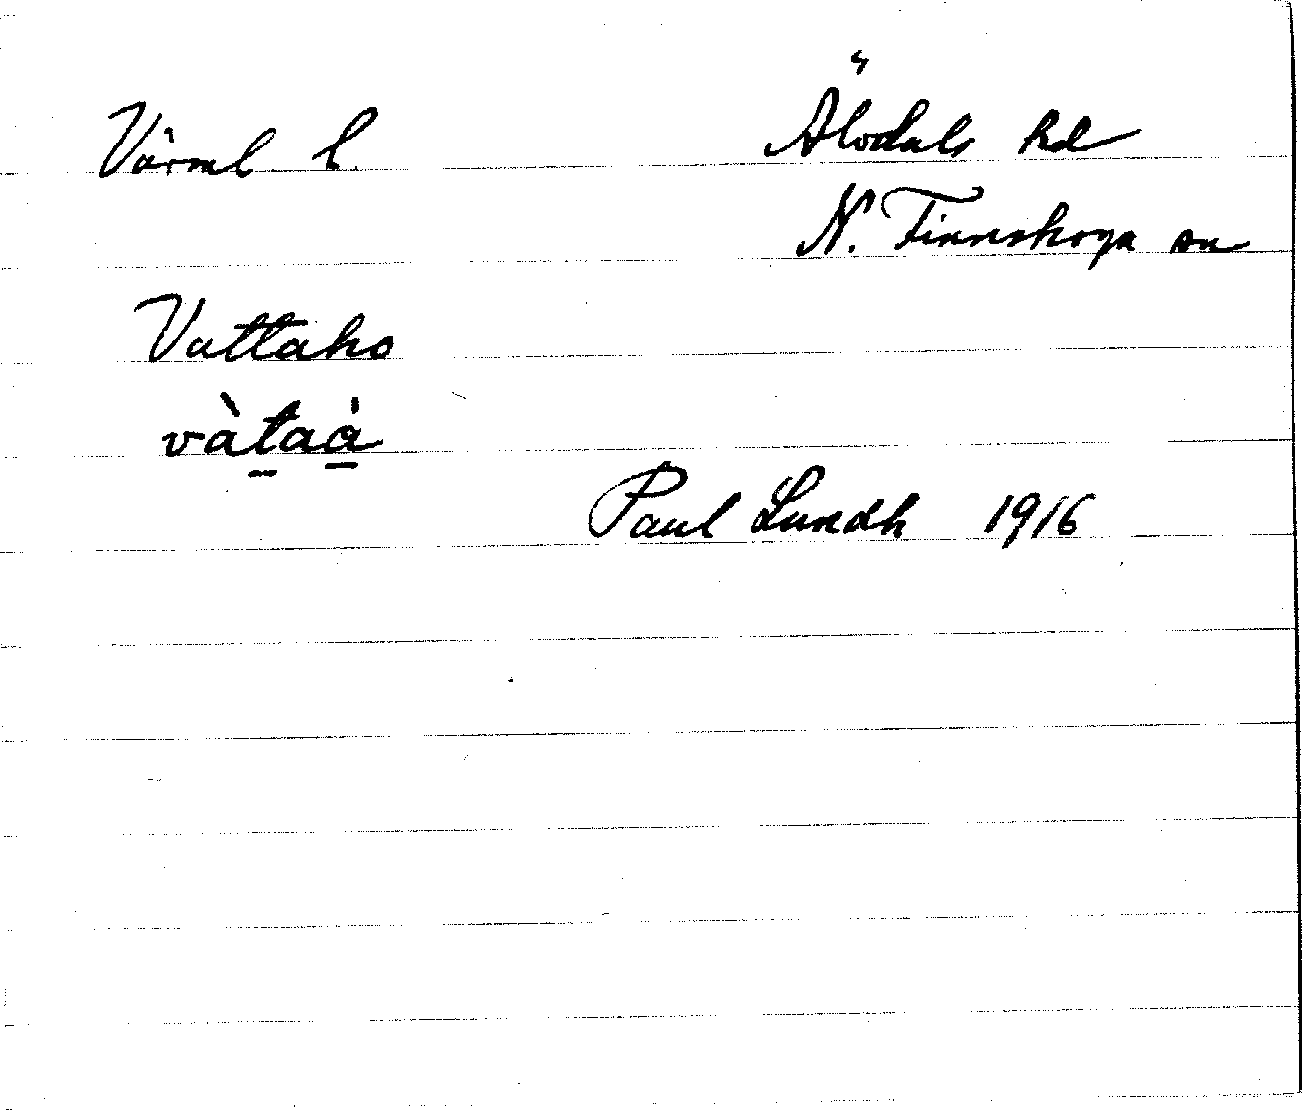 Värml l. Älvdals hd
N. Finnskoga sn
Vattaho
vàt̠aà̠
Paul Lundh 1916